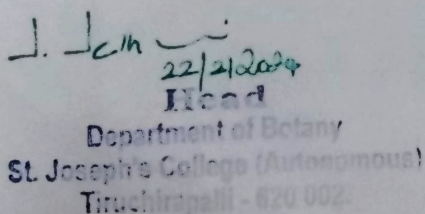 J.
22/2/2024
Head
Department of Botany
St. Joseph's College (Autonomous)
Tiruchirapalli - 620 002.